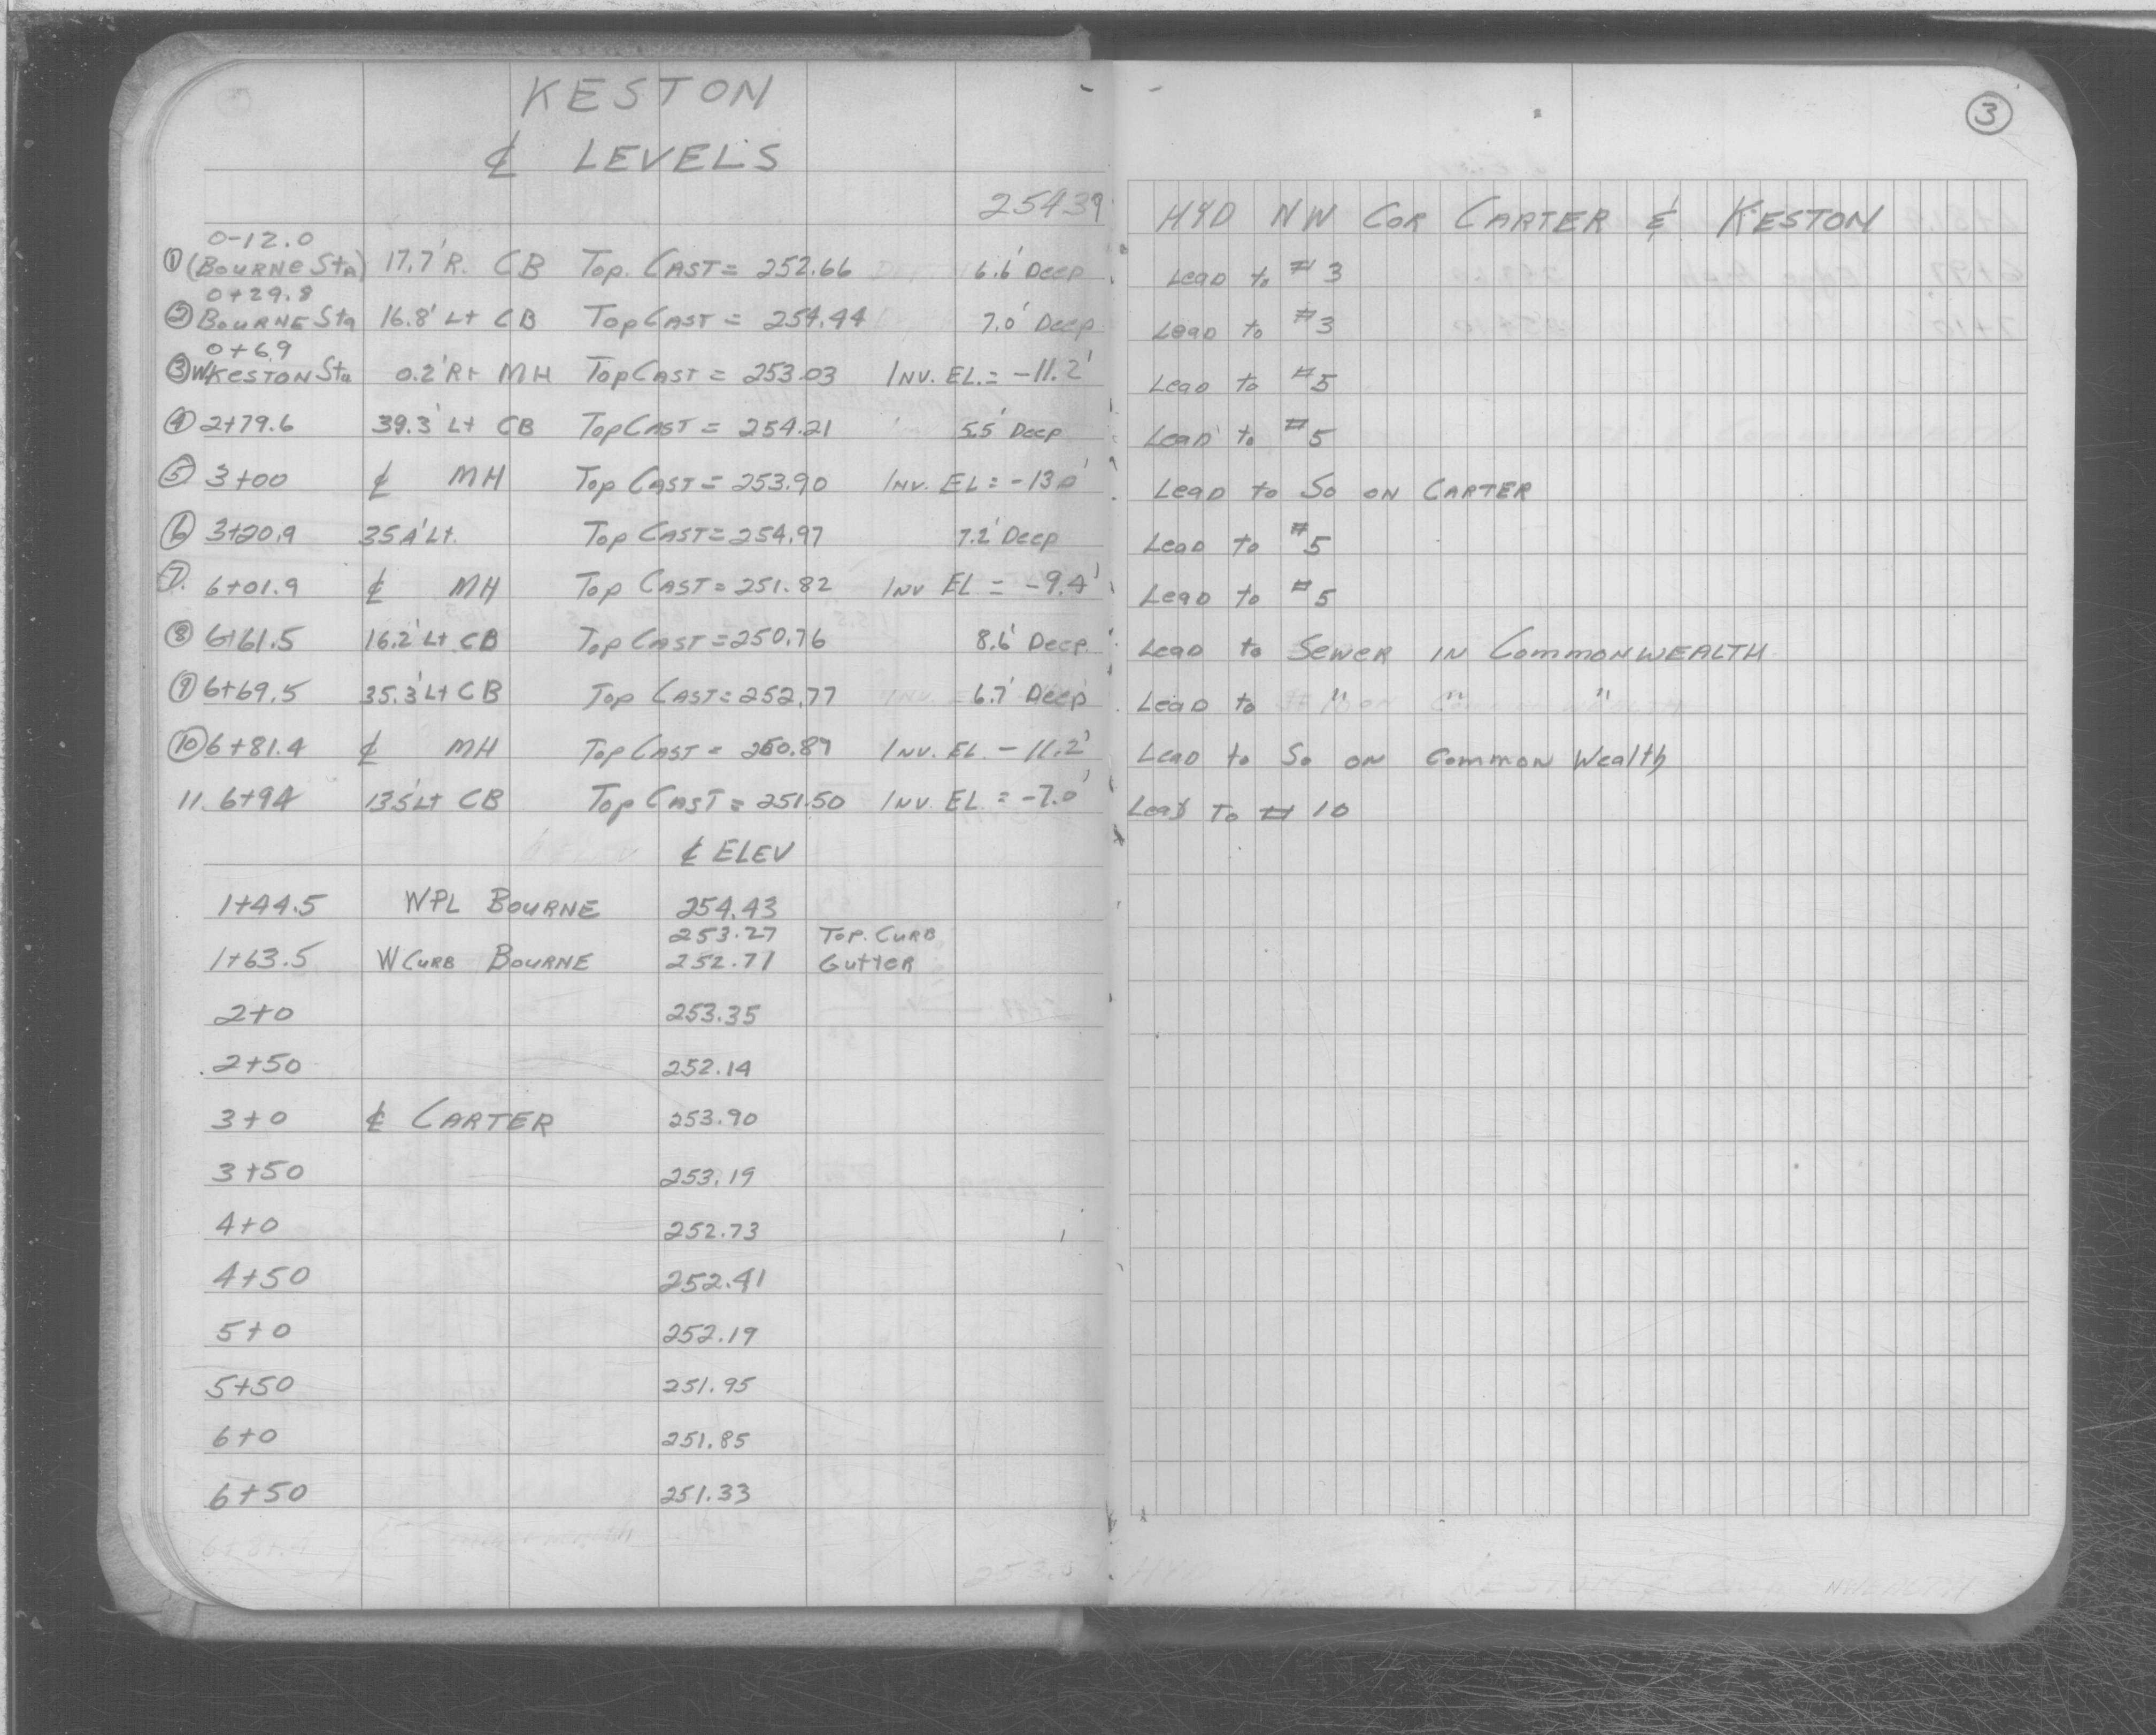 KESTON
℄ LEVELS
3
254.39 HYD NW COR CARTER & KESTON
0-12.0
① (BOURNE Sta) 17.7' R. CB Top. CAST = 252.66 6.6' Deep Lead to #3
0+29.8
② BOURNE Sta 16.8' Lt CB Top CAST = 254.44 7.0' Deep Lead to #3
0+6.9
③ W KESTON Sta 0.2' Rt MH Top CAST = 253.03 INV. EL. = -11.2' Lead to #5
④ 2+79.6 39.3' Lt CB Top CAST = 254.21 5.5' Deep Lead to #5
⑤ 3+00 ℄ MH Top CAST = 253.90 INV. EL = -13.0' Lead to So ON CARTER
⑥ 3+20.9 35.4' Lt. Top CAST = 254.97 7.2' Deep Lead to #5
⑦ 6+01.9 ℄ MH Top CAST = 251.82 INV EL = -9.4' Lead to #5
⑧ 6+61.5 16.2' Lt CB Top CAST = 250.76 8.6' Deep Lead to Sewer IN COMMONWEALTH
⑨ 6+69.5 35.3' Lt CB Top CAST = 252.77 6.7' Deep Lead to " " "
⑩ 6+81.4 ℄ MH Top CAST = 250.87 INV. EL. - 11.2' Lead to So ON Common Wealth
11. 6+94 13.5' Lt CB Top CAST = 251.50 INV. EL = -7.0' Lead To # 10
℄ ELEV
1+44.5 WPL BOURNE 254.43
253.27 Top. CURB
1+63.5 W CURB BOURNE 252.71 Gutter
2+0 253.35
2+50 252.14
3+0 ℄ CARTER 253.90
3+50 253.19
4+0 252.73
4+50 252.41
5+0 252.19
5+50 251.95
6+0 251.85
6+50 251.33